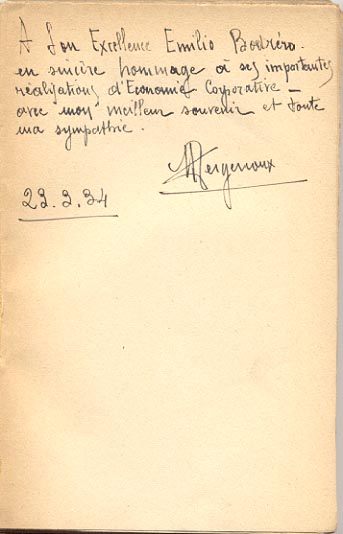 A Son Excellence Emilio Bodréro.
en sincère hommage à ses importantes
réalisations d'Economie Corporative –
avec mon meilleur souvenir et toute
ma sympathie.
23.3.34